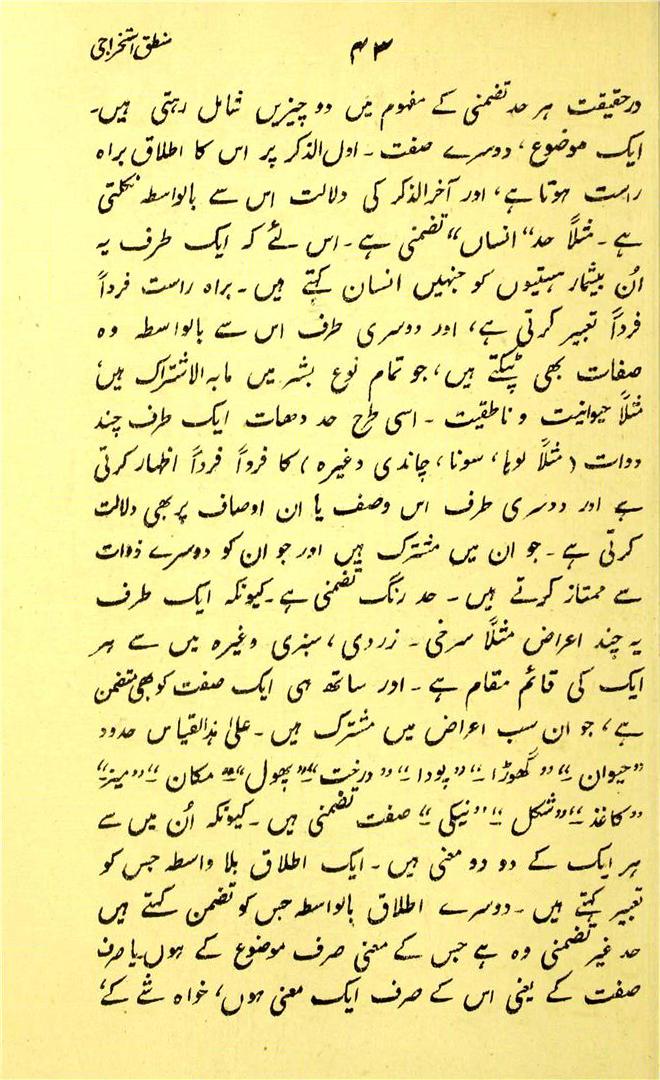 منطق استخراجی
۴۳
درحقیقت ہر حد تضمنی کے مفہوم میں دو چیزیں شامل رہتی ہیں۔
ایک موضوع، دوسرے صفت۔ اول الذکر پر اس کا اطلاق براہ
راست ہوتا ہے، اور آخرالذکر کی دلالت اس سے بالواسطہ نکلتی
ہے۔ مثلاً حد "انساں" تضمنی ہے۔ اس لئے کہ ایک طرف یہ
اُن بیشمار ہستیوں کو جنہیں انسان کہتے ہیں۔ براہ راست فرداً
فرداً تعبیر کرتی ہے، اور دوسری طرف اس سے بالواسطہ وہ
صفات بھی ٹپکتے ہیں، جو تمام نوع بشر میں مابہ الاشتراک ہیں
مثلاً حیوانیت و ناطقیت۔ اسی طرح حد دھات ایک طرف چند
ذوات (مثلاً لوہا، سونا، چاندی وغیرہ) کا فرداً فرداً اظہار کرتی
ہے اور دوسری طرف اس وصف یا ان اوصاف پر بھی دلالت
کرتی ہے۔ جو ان میں مشترک ہیں اور جو ان کو دوسرے ذوات
سے ممتاز کرتے ہیں۔ حد رنگ تضمنی ہے۔ کیونکہ ایک طرف
یہ چند اعراض مثلاً سرخی۔ زردی، سبزی وغیرہ میں سے ہر
ایک کی قائم مقام ہے۔ اور ساتھ ہی ایک صفت کو بھی متضمن
ہے، جو ان سب اعراض میں مشترک ہیں۔ علیٰ ہذالقیاس حدود
"حیوان"۔ "گھوڑا"۔ "پودا"۔ "درخت"۔ "پھول"۔ مکان"۔ "میز"۔
"کاغذ"۔ "شکل"۔ "نیکی"۔ صفت تضمنی ہیں۔ کیونکہ اُن میں سے
ہر ایک کے دو دو معنی ہیں۔ ایک اطلاق بلا واسطہ جس کو
تعبیر کہتے ہیں۔ دوسرے اطلاق بالواسطہ جس کو تضمن کہتے ہیں
حد غیر تضمنی وہ ہے جس کے معنی صرف موضوع کے ہوں۔ یا صرف
صفت کے یعنی اس کے صرف ایک معنی ہوں، خواہ شے کے،